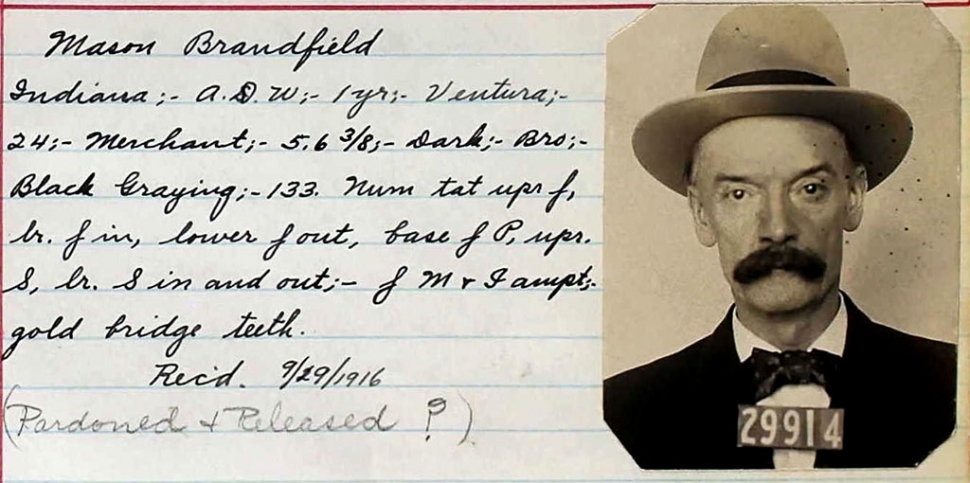 Mason Brandfield
Indiana;- A.D.W;- 1yr;- Ventura;-
24;- Merchant;- 5.6 3/8;- Dark;- Bro;-
Black Graying;-133. Num tat upr f,
lr. f in, lower f out, base f P, upr.
S, lr. S in and out;- f M & I ampt;-
gold bridge teeth.
Rec'd. 9/29/1916
(Pardoned & Released ?)
29914